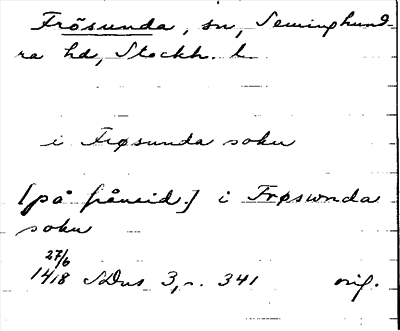 Frösunda, sn, Seminghund-
ra hd, Stockh. l.
i Frøsunda sokn
[på frånsid.] i Frøswnda
sokn
27/6
1418 SDns 3, s. 341 orig.